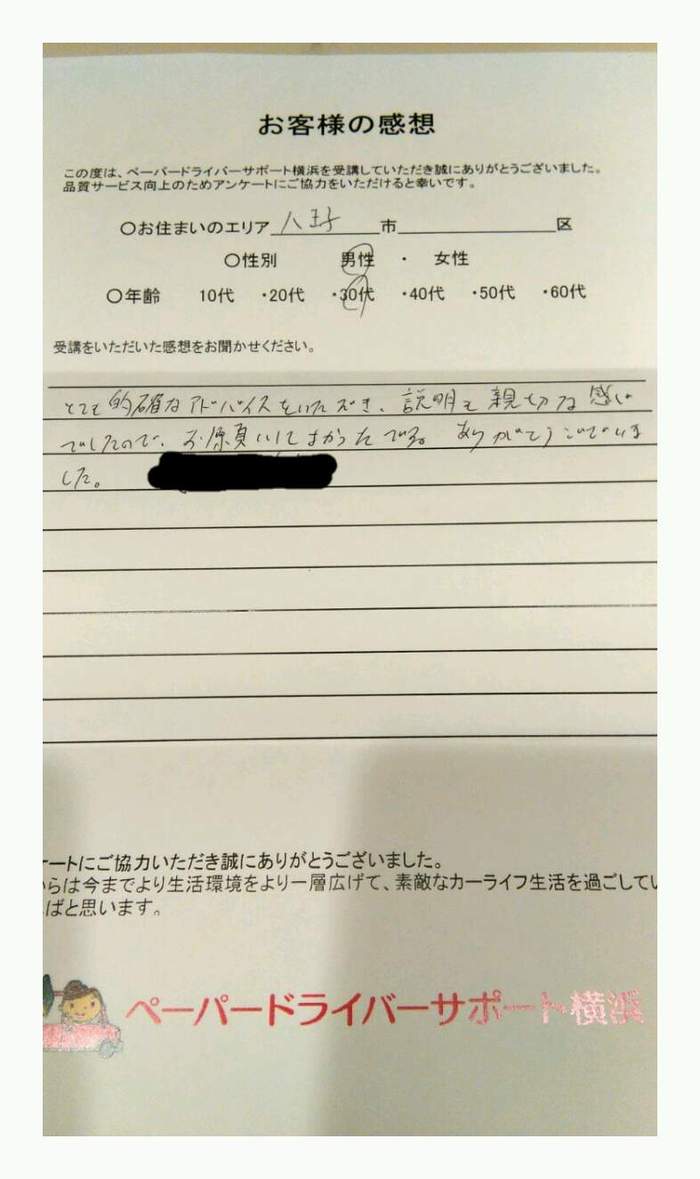 お客様の感想
この度は、ペーパードライバーサポート横浜を受講していただき誠にありがとうございました。
品質サービス向上のためアンケートにご協力をいただけると幸いです。
〇お住まいのエリア 八王子 市 区
〇性別 男性 ・ 女性
〇年齢 10代 ・20代 ・30代 ・40代 ・50代 ・60代
受講をいただいた感想をお聞かせください。
とても的確なアドバイスをいただき、説明も親切な感じ
でしたので、お願いしてよかったです。ありがとうございま
した。
ケートにご協力いただき誠にありがとうございました。
らは今までより生活環境をより一層広げて、素敵なカーライフ生活を過ごしてい
ばと思います。
ペーパードライバーサポート横浜